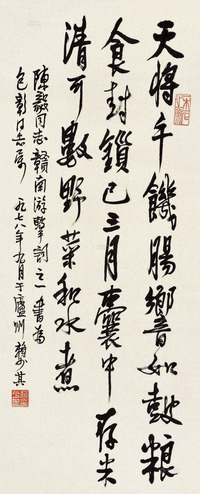 天將午饑腸響如鼓粮
食封鎖已三月囊中存米
清可數野菜和水煮
陳毅同志贛南游擊詞之一書為
包同志屬一九七八年九月于廬州賴少其